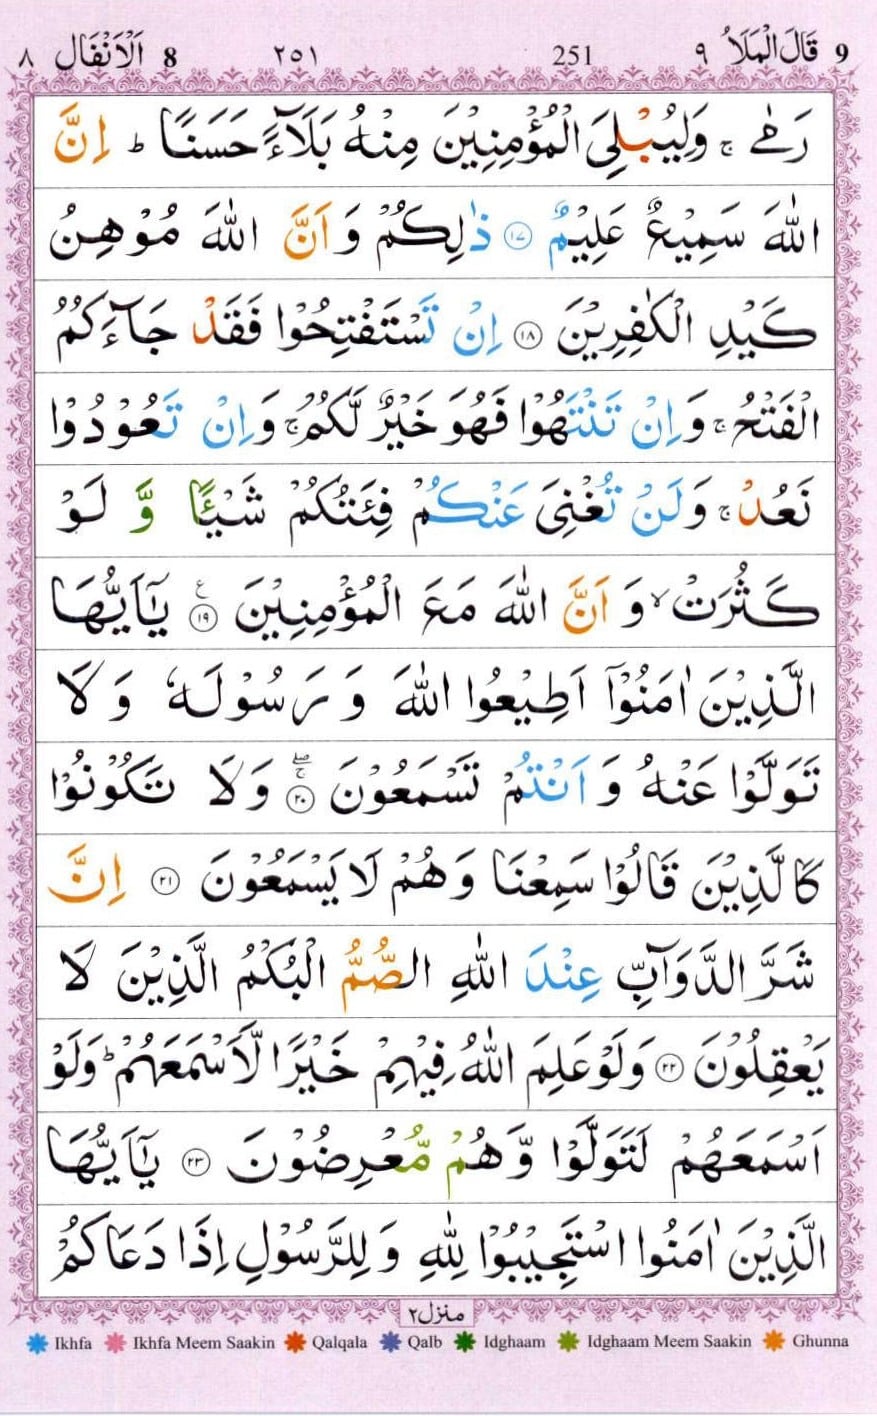 ٨ اَلْاَنْفَال 8 ٢٥١ 251 قَالَ الْمَلَاُ ٩ 9
رَمٰى ۚ وَلِيُبْلِيَ الْمُؤْمِنِيْنَ مِنْهُ بَلَآءً حَسَنًا ؕ اِنَّ
اللّٰهَ سَمِيْعٌ عَلِيْمٌ ۝١٧ ذٰلِكُمْ وَ اَنَّ اللّٰهَ مُوْهِنُ
كَيْدِ الْكٰفِرِيْنَ ۝١٨ اِنْ تَسْتَفْتِحُوْا فَقَدْ جَآءَكُمُ
الْفَتْحُ ۚ وَاِنْ تَنْتَهُوْا فَهُوَ خَيْرٌ لَّكُمْ ۚ وَاِنْ تَعُوْدُوْا
نَعُدْ ۚ وَلَنْ تُغْنِيَ عَنْكُمْ فِئَتُكُمْ شَيْـًٔا وَّ لَوْ
كَثُرَتْ ۙ وَ اَنَّ اللّٰهَ مَعَ الْمُؤْمِنِيْنَ ۝١٩ ع يٰٓاَيُّهَا
الَّذِيْنَ اٰمَنُوْٓا اَطِيْعُوا اللّٰهَ وَ رَسُوْلَهٗ وَ لَا
تَوَلَّوْا عَنْهُ وَ اَنْتُمْ تَسْمَعُوْنَ ۝٢٠ۖۚ وَ لَا تَكُوْنُوْا
كَالَّذِيْنَ قَالُوْا سَمِعْنَا وَ هُمْ لَا يَسْمَعُوْنَ ۝٢١ اِنَّ
شَرَّ الدَّوَآبِّ عِنْدَ اللّٰهِ الصُّمُّ الْبُكْمُ الَّذِيْنَ لَا
يَعْقِلُوْنَ ۝٢٢ وَلَوْ عَلِمَ اللّٰهُ فِيْهِمْ خَيْرًا لَّاَسْمَعَهُمْ ؕ وَلَوْ
اَسْمَعَهُمْ لَتَوَلَّوْا وَّ هُمْ مُّعْرِضُوْنَ ۝٢٣ يٰٓاَيُّهَا
الَّذِيْنَ اٰمَنُوا اسْتَجِيْبُوْا لِلّٰهِ وَ لِلرَّسُوْلِ اِذَا دَعَاكُمْ
منزل٢
Ikhfa Ikhfa Meem Saakin Qalqala Qalb Idghaam Idghaam Meem Saakin Ghunna